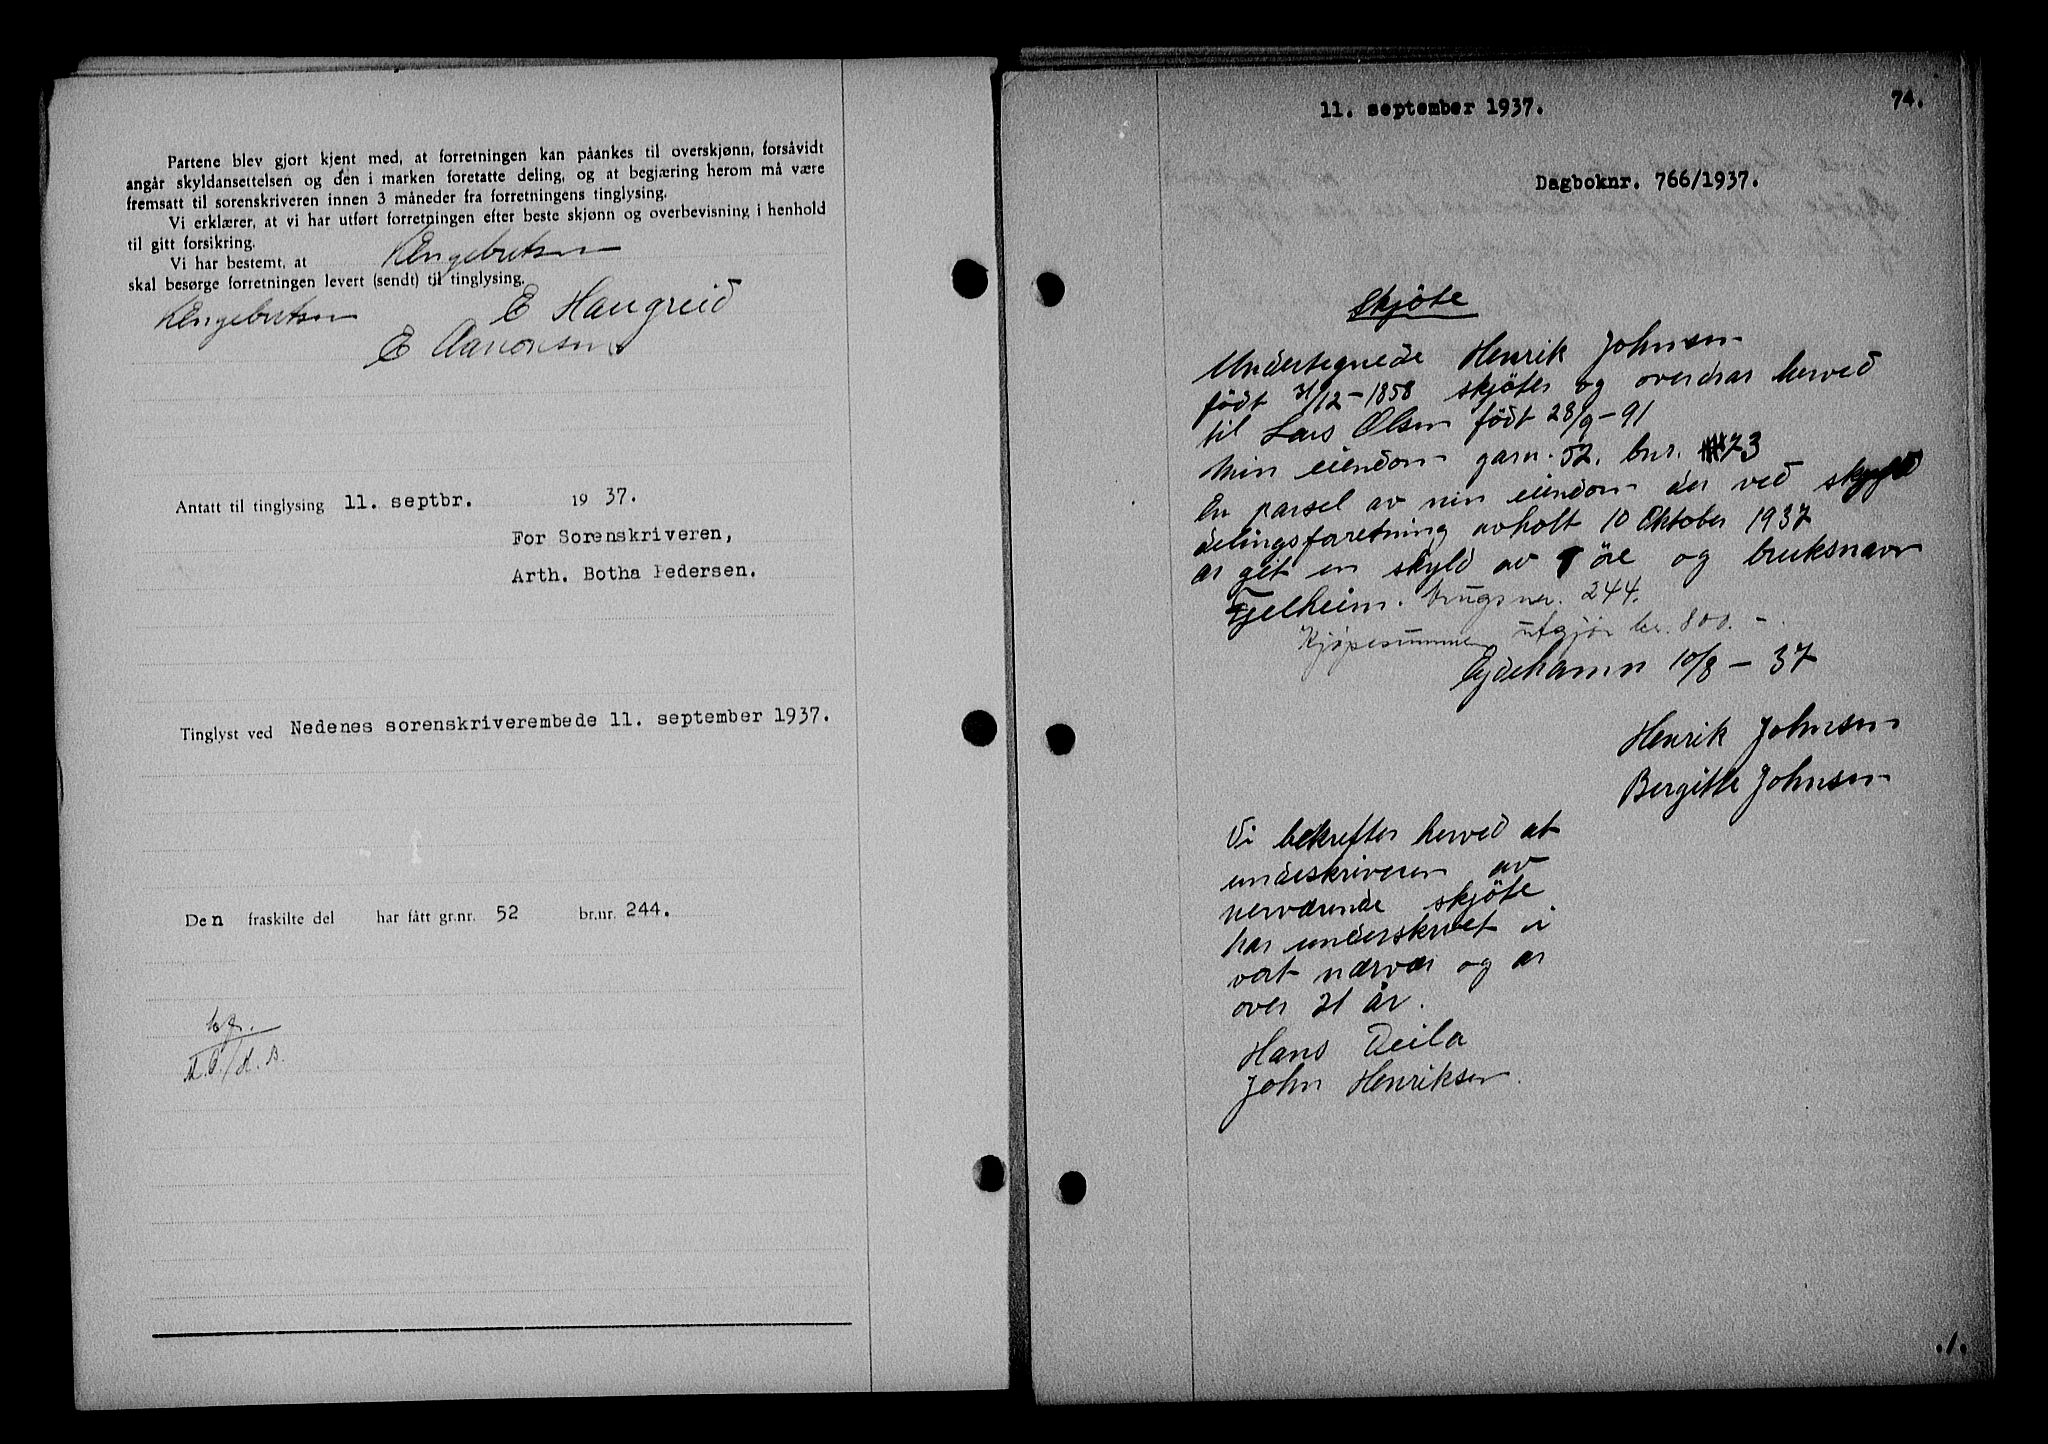 Partene blev gjort kjent med, at forretningen kan påankes til overskjønn, forsåvidt
angår skyldansettelsen og den i marken foretatte deling, og at begjæring herom må være
fremsatt til sorenskriveren innen 3 måneder fra forretningens tinglysing.
Vi erklærer, at vi har utført forretningen efter beste skjønn og overbevisning i henhold
til gitt forsikring.
Vi har bestemt, at KEngebretsen
skal besørge forretningen levert (sendt) til tinglysing.
KEngebretsen E Haugreid
E Aanonsen
Antatt til tinglysing 11. septbr. 19 37.
For Sorenskriveren,
Arth. Botha Pedersen.
Tinglyst ved Nedenes sorenskriverembede 11. september 1937.
Den fraskilte del har fått gr.nr. 52 br.nr. 244.
11. september 1937. 74.
Dagboknr. 766/1937.
Skjöte
Undertegnede Henrik Johnsen
födt /12-1858 skjöter og overdrar herved
til Lars Olsen födt 28/9-91
Min eiendom garn. 52. bnr. 73
En parsel av min eiendom der ved skyld
delingsforetning avholt 10 Oktober 1937
er git en skyld av öre og bruksnavn
Fjelheim. brugsnr. 244.
Kjøpesummen utgjør kr. 800.-
Eydehamn 10/8-37
Henrik Johnsen
Bergitte Johnsen
Vi bekrefter herved at
underskriveren av
nerværende skjöte
har underskrevet i
vort nærvær og er
over 21 år.
Hans Deila
John Henriksen.
./.